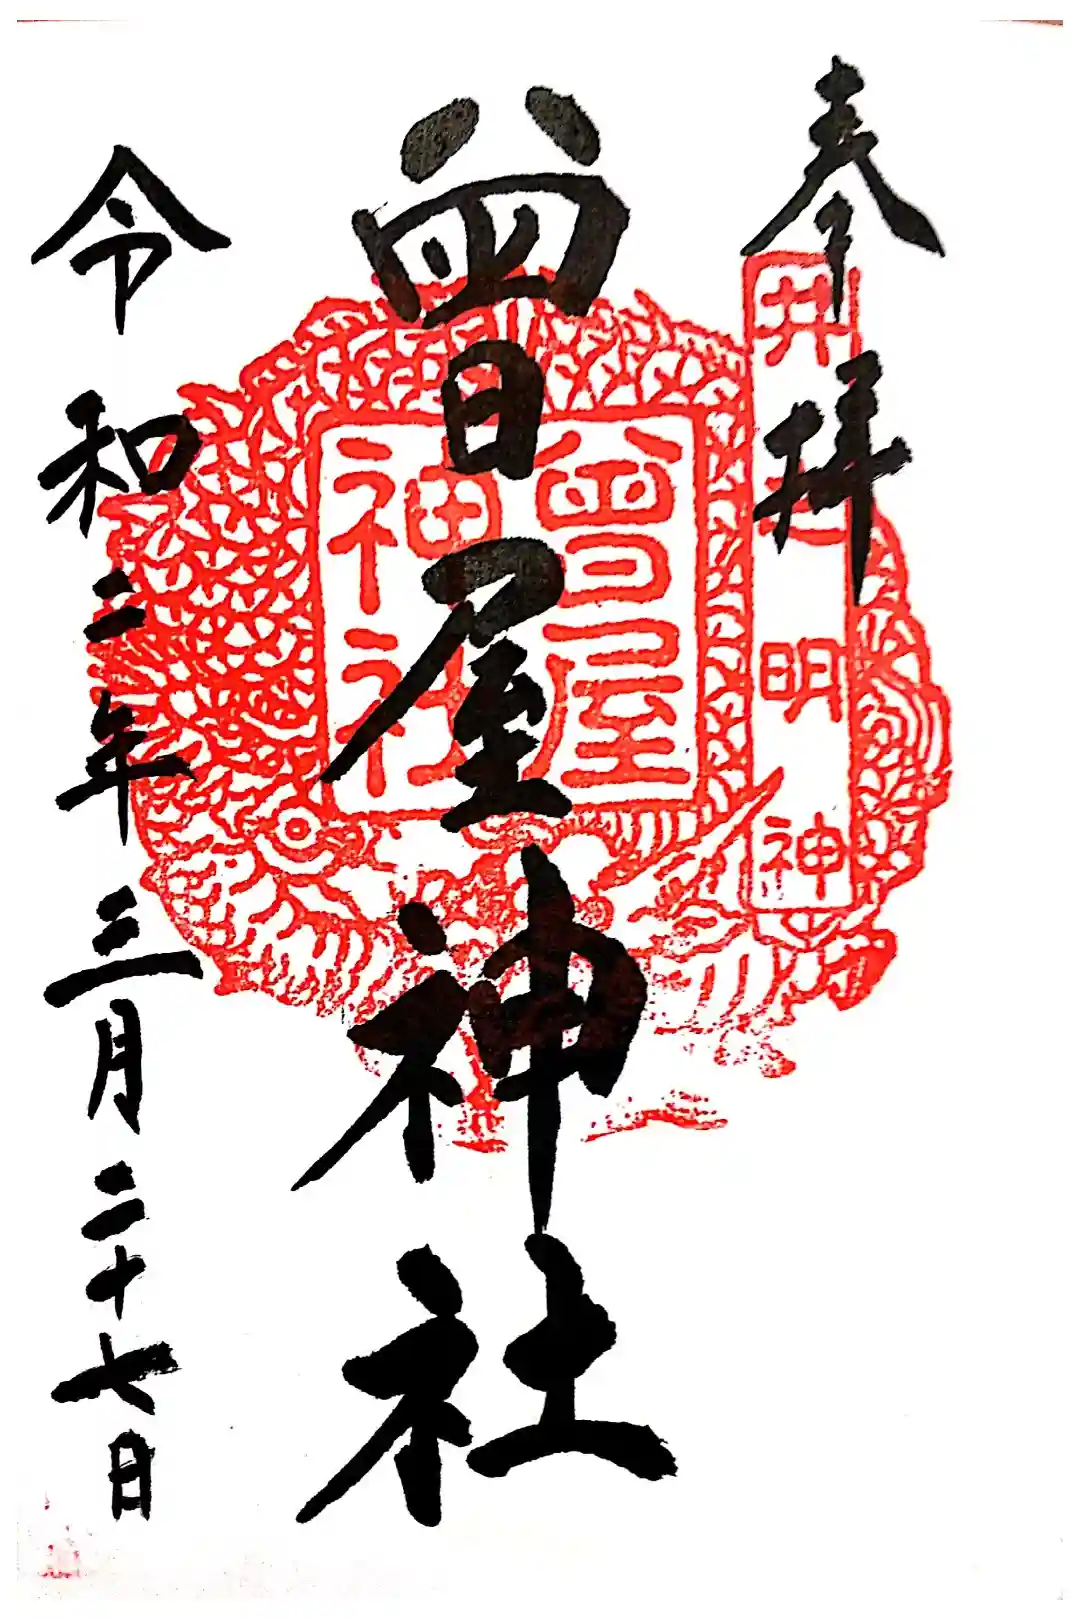 奉拝
井之明神
曾屋神社
曾屋
神社
令和二年三月二十七日